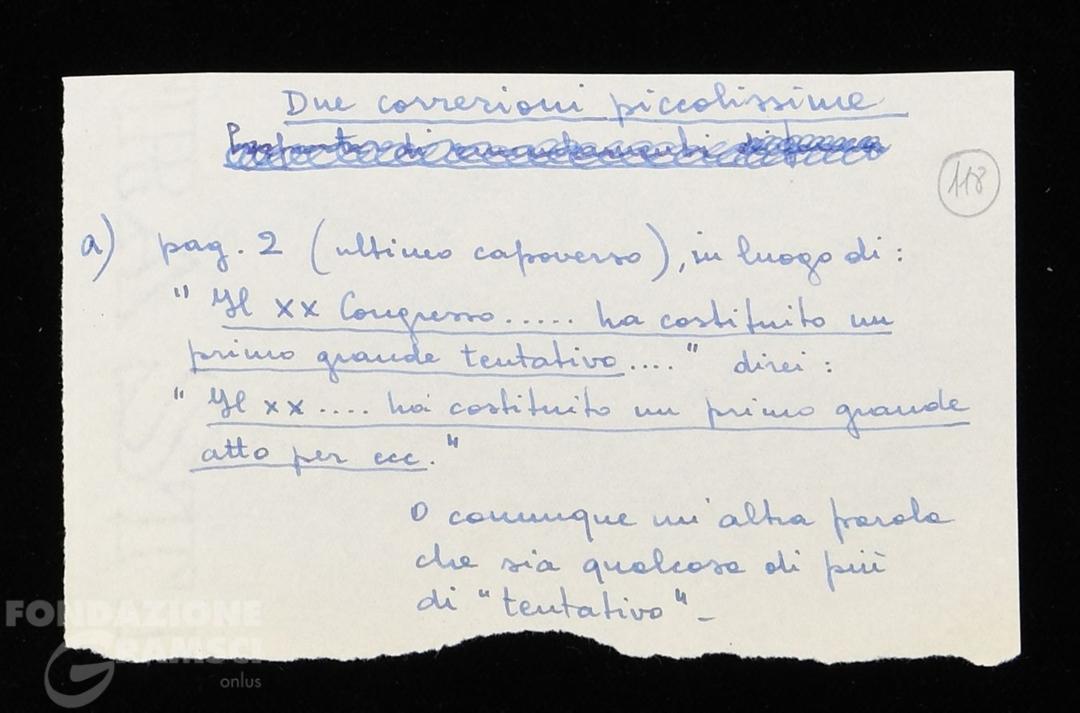 Due correzioni piccolissime
di emendamenti di
118
a) pag. 2 (ultimo capoverso), in luogo di :
" Il XX Congresso ..... ha costituito un
primo grande tentativo .... " direi :
" Il XX .... ha costituito un primo grande
atto per ecc. "
O comunque un'altra parola
che sia qualcosa di più
di "tentativo" -
FONDAZIONE
GRAMSCI
onlus